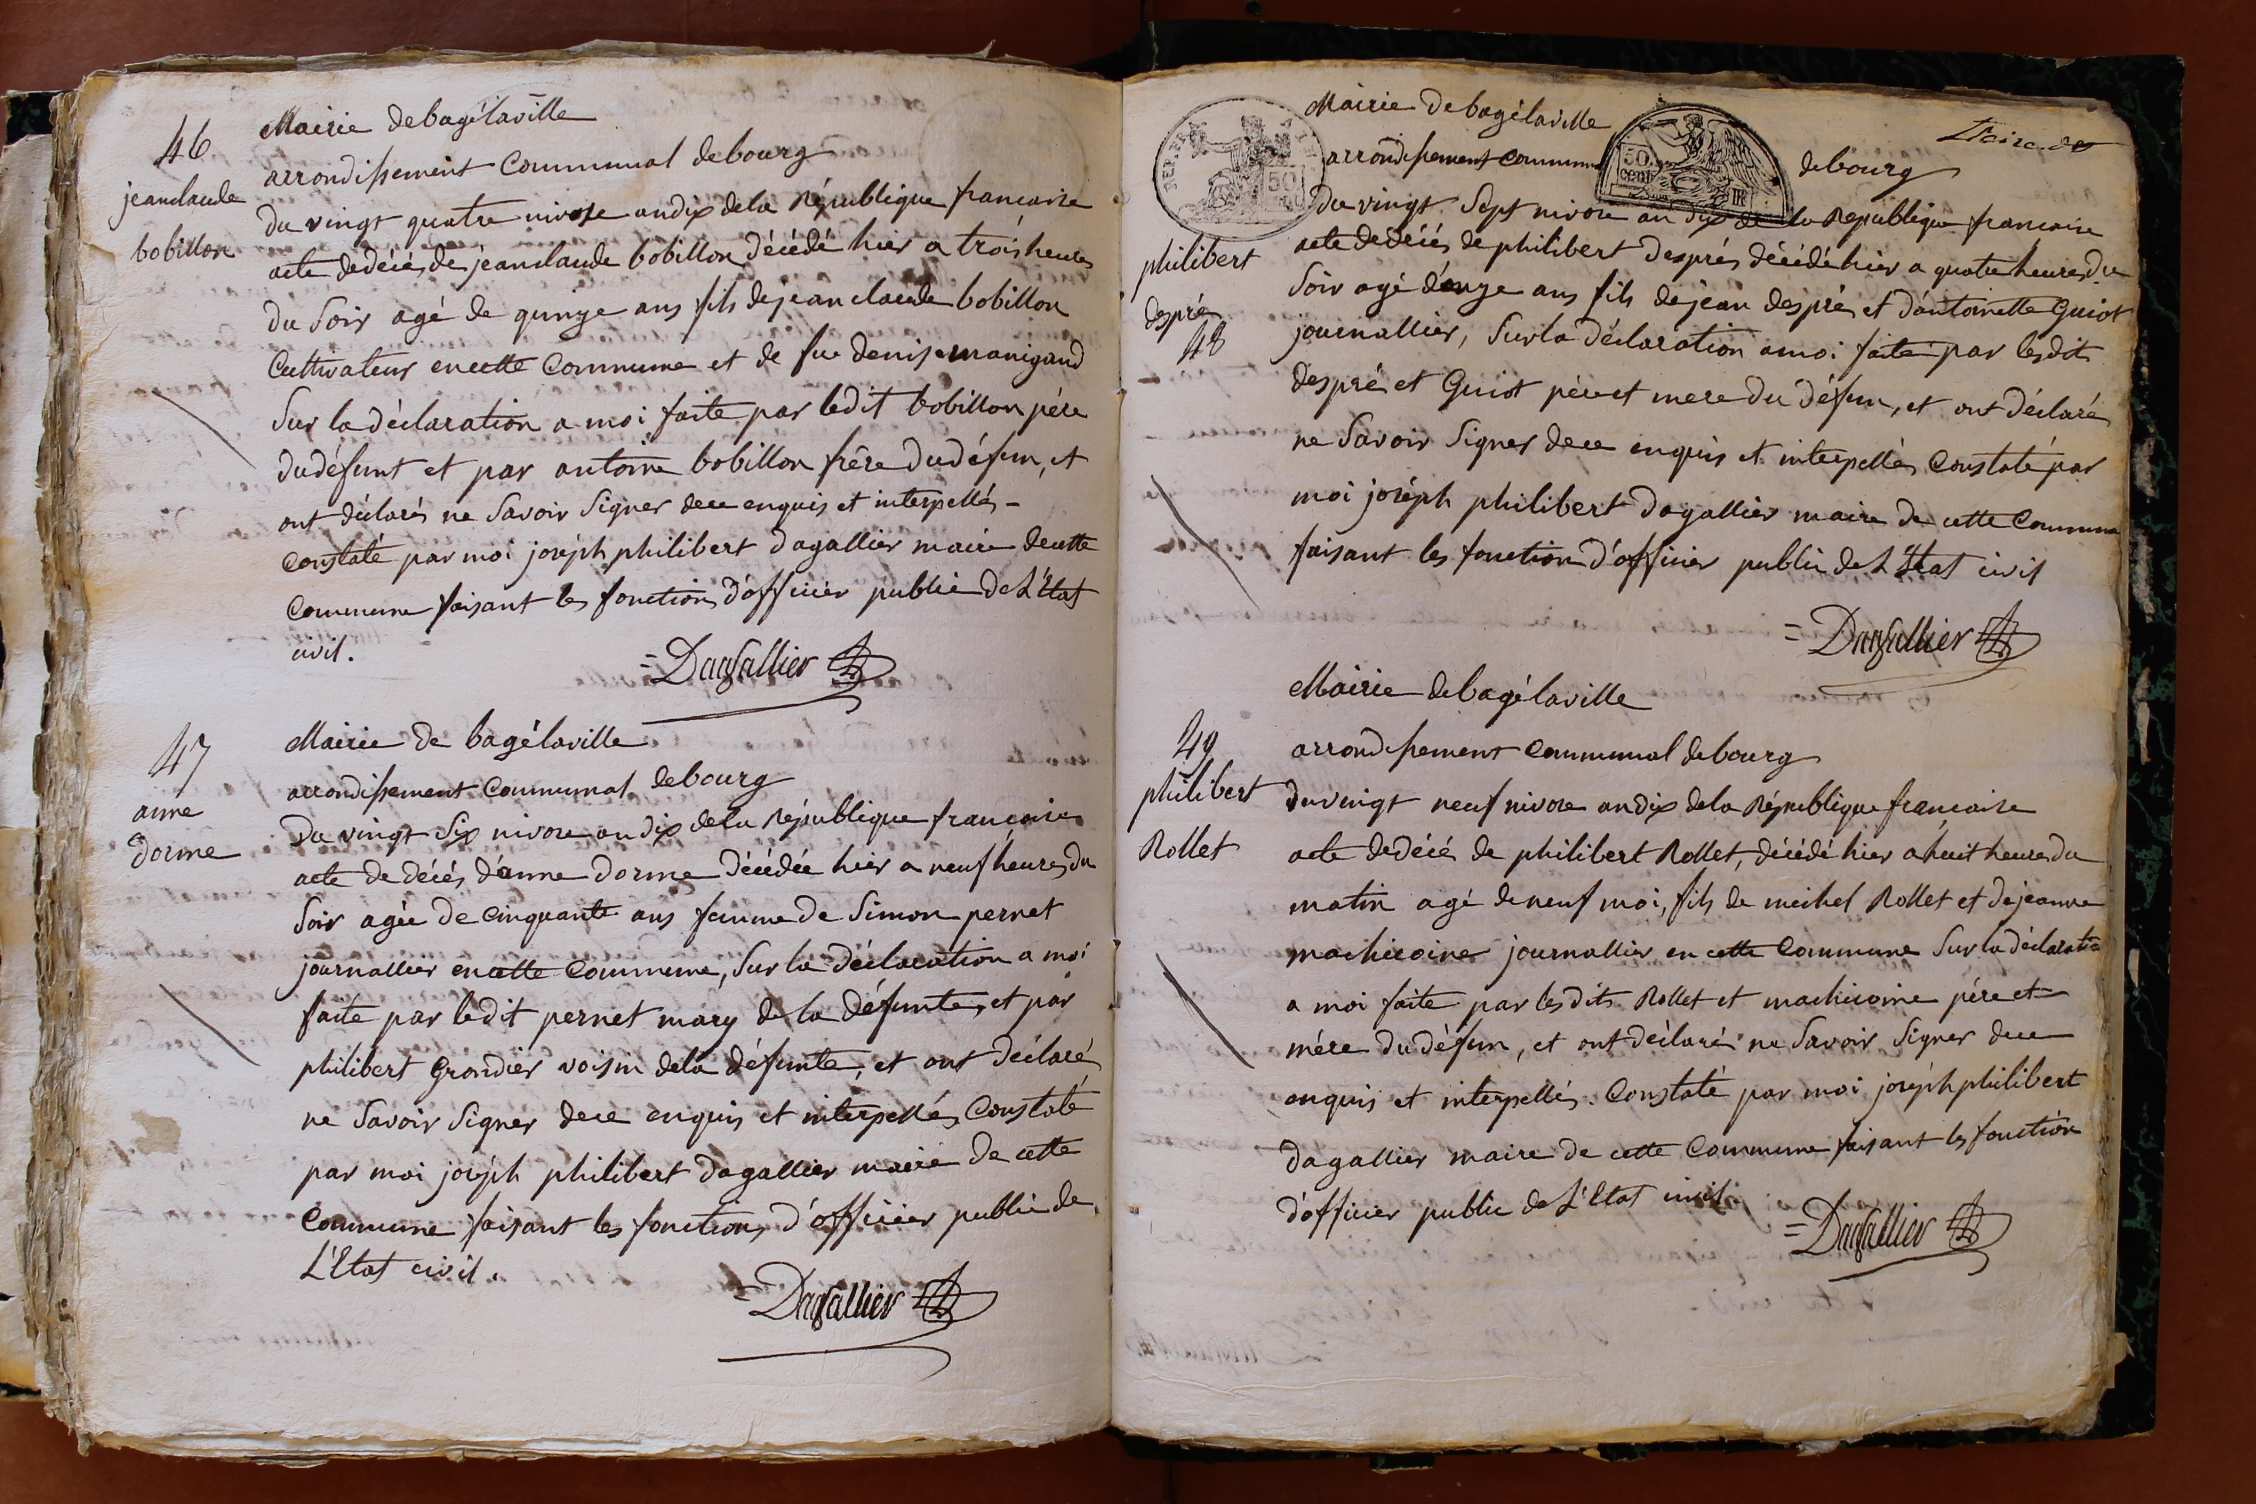 46
jeanclaude
bobillon
Mairie debagélaville
arrondissement Communal debourg
du vingt quatre nivose andix dela République francaise
acte dedécés de jeanclaude bobillon décédé hier a trois heures
du Soir agé de quinze ans fils dejean claude bobillon
Cultivateur encette Commune et de fue denise manigand
Sur la déclaration a moi faite par ledit bobillon pére
dudéfunt et par antoine bobillon frére dudéfun, et
ont déclarés ne Savoir Signer dece enquis et interpellés -
Constaté par moi joséph philibert dagallier maire decette
Commune faisant les fonctions d'officier public de L'état
civil.
= Dagallier
47
anne
dorme
Mairie de bagélaville
arrondissement Communal debourg
Du vingt Six nivose an dix dela République francaise
acte de décés d'anne dorme décédée hier a neuf heures du
Soir agée de Cinquante ans femme de Simon pernet
journallier encette Commune, Sur la déclaration a moi
faite par ledit pernet mary de la défunte, et par
philibert Grondier voisin dela défunte, et ont déclaré
ne Savoir Signer dece enquis et interpellés Constaté
par moi joséph philibert dagallier maire de cette
Commune faisant les fonctions d'officier public de
L'Etat civil.
= Dagallier
Mairie debagélaville
arrondissement Commun debourg
REP. FRA
50
50
cent
philibert
despré
48
Du vingt Sept nivose an dix de la République francaise
acte dedécés de philibert després décédé hier a quatre heures du
Soir agé d'onze ans fils dejean despré et d'antoinette Guiot
journallier, Sur la déclaration amoi faite par lesdits
despré et Guiot pére et mere du défun, et ont déclaré
ne Savoir Signer dece enquis et interpellés Constaté par
moi joséph philibert dagallier maire de cette Commune
faisant les fonction d'officier public de L'Etat civil
= Dagallier
49
philibert
Rollet
Mairie debagélaville
arrondissement Communal debourg
du vingt neuf nivose andix dela République francaise
acte dedécé de philibert Rollet, décédé hier a huit heures du
matin agé deneuf moi, fils de meichel Rollet et dejeanne
machicoine journallier en cette Commune Sur la déclaration
a moi faite par lesdits Rollet et machicoine pére et
mére du défun, et ont déclaré ne Savoir Signer dece
enquis et interpellés. Constaté par moi joséph philibert
dagallier maire de cette Commune faisant les fonction
d'officier public de L'Etat civil
= Dagallier